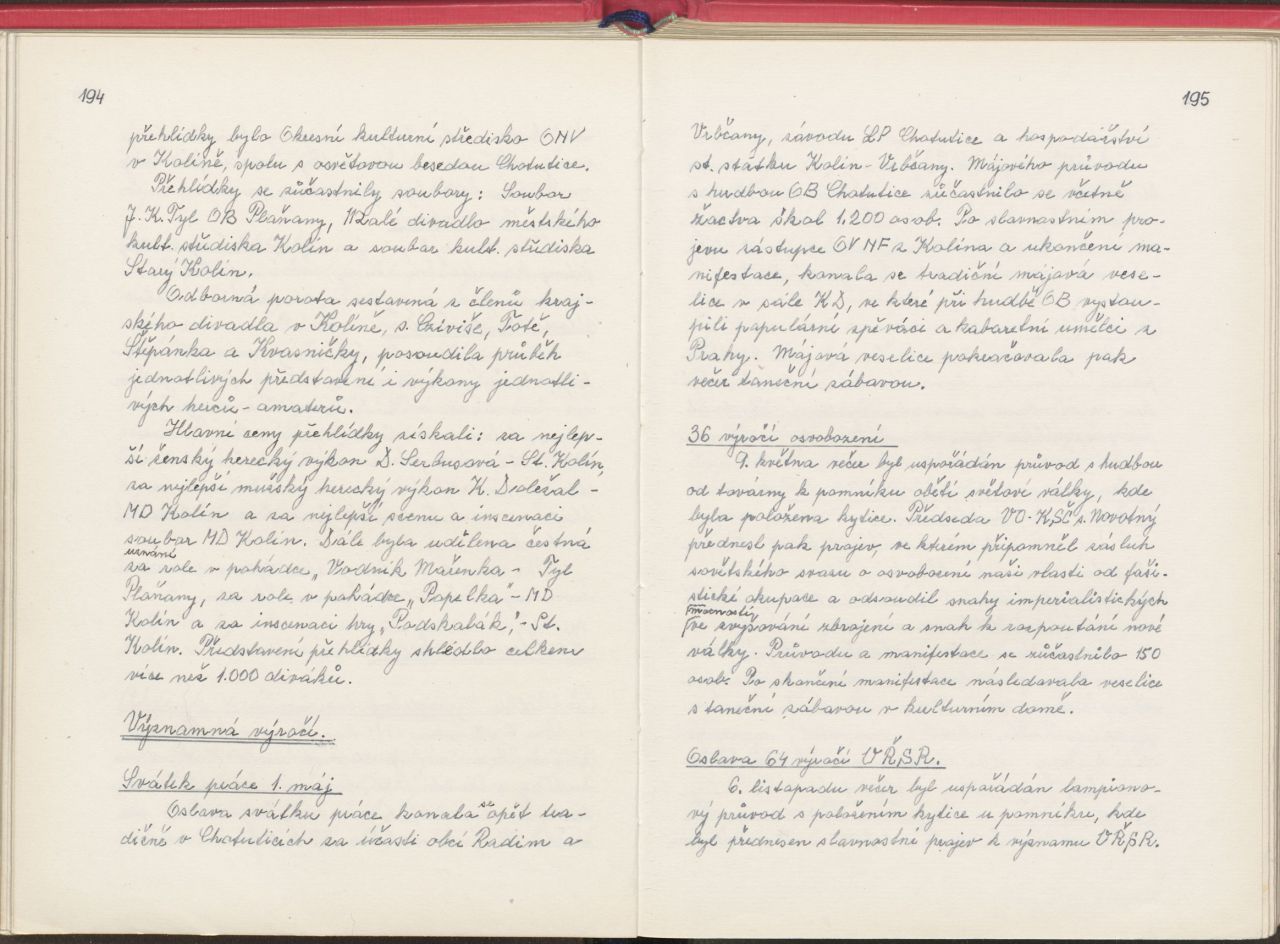 194
přehlídky bylo Okresní kulturní středisko ONV
v Kolíně, spolu s osvětovou besedou Chotutice.
Přehlídky se zúčastnily soubory: Soubor
J. K. Tyl OB Plaňany, Malé divadlo městského
kult. střediska Kolín a soubor kult. střediska
Starý Kolín.
Odborná porota sestavená z členů kraj-
ského divadla v Kolíně, s. Cziviše, Totě,
Štěpánka a Kvasničky, posoudila průběh
jednotlivých představení i výkony jednotli-
vých herců - amaterů.
Hlavní ceny přehlídky získali: za nejlep-
ší ženský herecký výkon D. Serbusová - St. Kolín,
za nejlepší mužský herecký výkon K. Doležal -
MD Kolín a za nejlepší scenu a inscenaci
soubor MD Kolín. Dále byla udělena čestná
uznání
za role v pohádce „Vodník Mařenka - Tyl
Plaňany, za role v pohádce „Popelka" - MD
Kolín a za inscenaci hry „Podskalák", - St.
Kolín. Představení přehlídky shlédlo celkem
více než 1.000 diváků.
Významná výročí.
Svátek práce 1. máj
Oslava svátku práce konala se opět tra-
dičně v Chotuticích za účasti obcí Radim a
195
Vrbčany, závodu LP Chotutice a hospodářství
st. statku Kolín - Vrbčany. Májového průvodu
s hudbou OB Chotutice zúčastnilo se včetně
žactva škol 1.200 osob. Po slavnostním pro-
jevu zástupce OV NF z Kolína a ukončení ma-
nifestace, konala se tradiční májová vese-
lice v sále KD, ve které při hudbě OB vystou-
pili populární zpěváci a kabaretní umělci z
Prahy. Májová veselice pokračovala pak
večer taneční zábavou.
36 výročí osvobození
9. května večer byl uspořádán průvod s hudbou
od továrny k pomníku obětí světové války, kde
byla položena kytice. Předseda VO-KSČ s. Novotný
přednesl pak projev, ve kterém připomněl zásluh
sovětského svazu o osvobození naší vlasti od faši-
stické okupace a odsoudil snahy imperialistických
mocností
ve zvyšování zbrojení a snah k rozpoutání nové
války. Průvodu a manifestace se zúčastnilo 150
osob. Po skončení manifestace následovala veselice
s taneční zábavou v kulturním domě.
Oslava 64 výročí VŘSR.
6. listopadu večer byl uspořádán lampiono-
vý průvod s položením kytice u pomníku, kde
byl přednesen slavnostní projev k významu VŘSR.